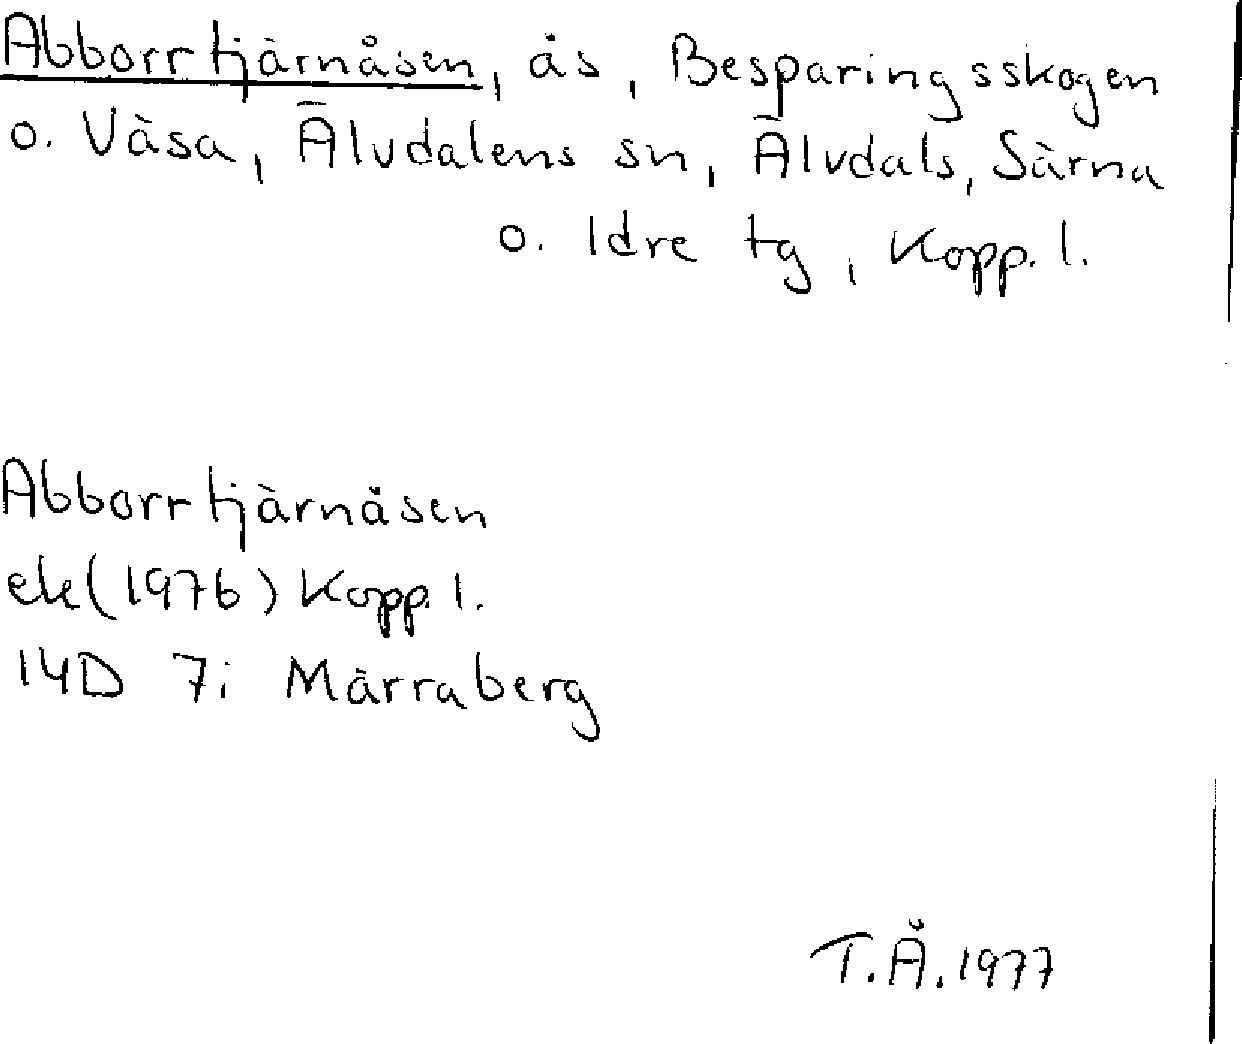 Abborrtjärnåsen, ås, Besparingsskogen
o. Våsa, Älvdalens sn, Älvdals, Särna
o. Idre tg, Kopp. l.
Abborrtjärnåsen
ek (1976) Kopp. l.
14D 7i Märraberg
T.Å. 1977